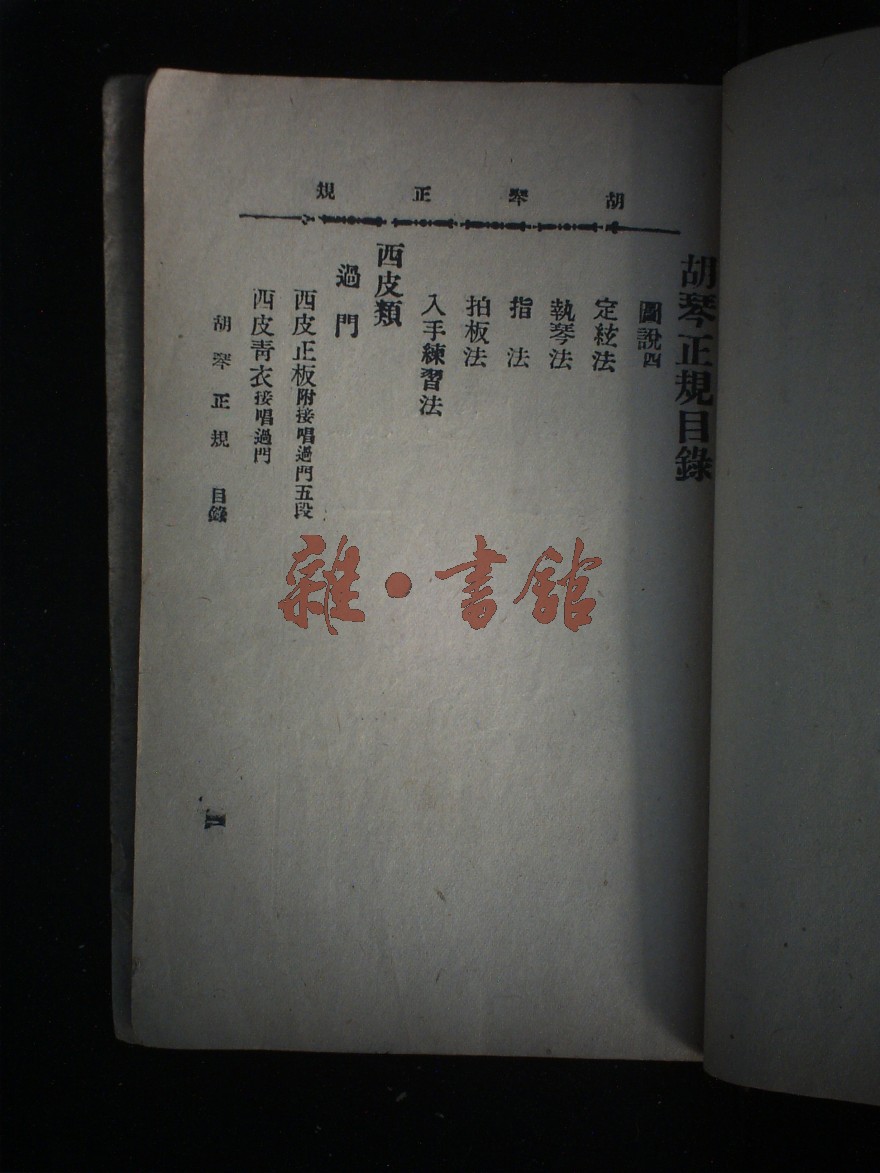 胡琴正規
胡琴正規目錄
圖說四
定絃法
執琴法
指法
拍板法
入手練習法
西皮類
過門
西皮正板附接唱過門五段
西皮靑衣接唱過門
胡琴正規 目錄
雜·書館